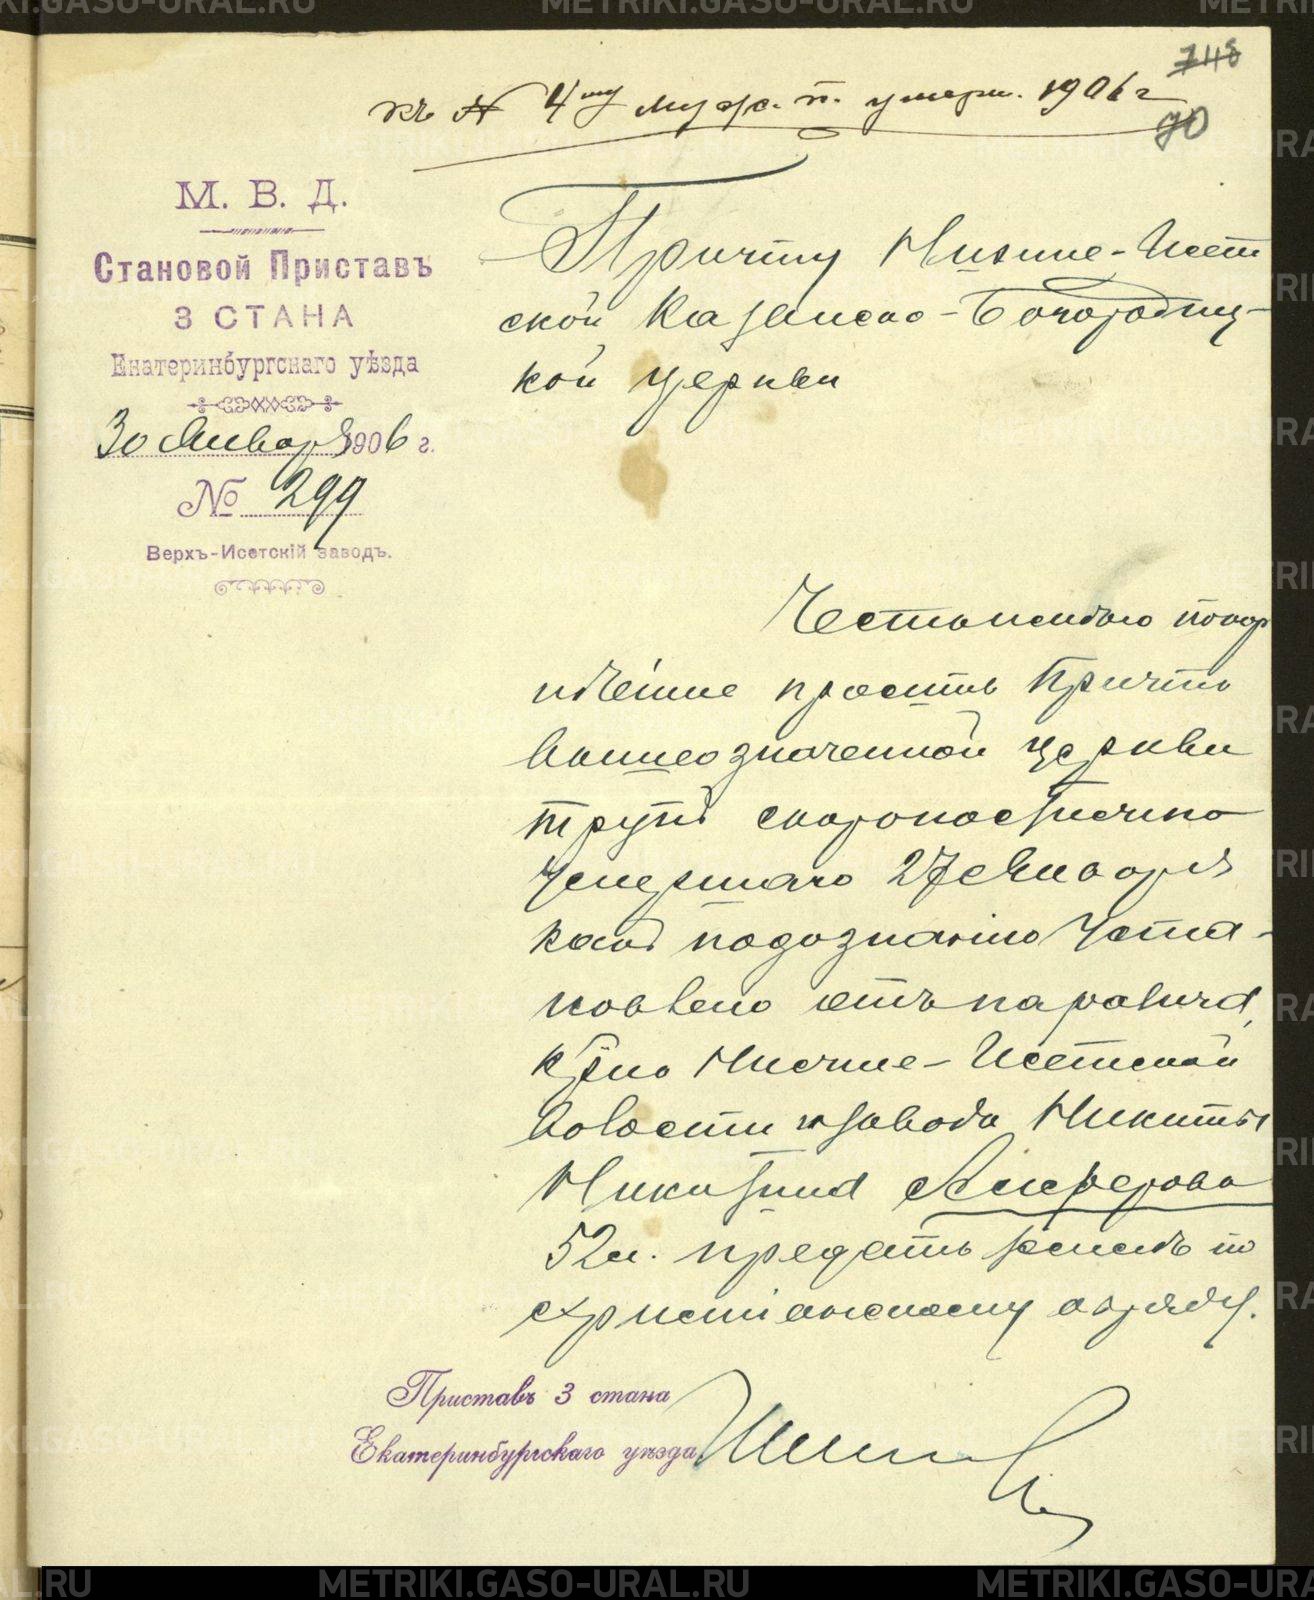 748
къ № 4му муж. п. умерш. 1906 г
70
М. В. Д.
Становой Приставъ
3 СТАНА
Екатеринбургскаго уѣзда
30 Января 1906 г.
№ 299
Верхъ-Исетскій заводъ.
Причту Нижне-Исет
ской Казанско-Богородиц-
кой церкви
Честь имѣю покор
нѣйше просить Причтъ
вышеозначенной церкви
трупъ скоропостижно
Умершаго 27 Января
какъ по дознанію Уста-
новлено отъ паралича,
кр-на Нижне-Исетской
волости и завода Никиты
Никитина Алферова
52 л. предать землѣ по
христіанскому обряду.
Приставъ 3 стана
Екатеринбургскаго уѣзда
METRIKI.GASO-URAL.RU